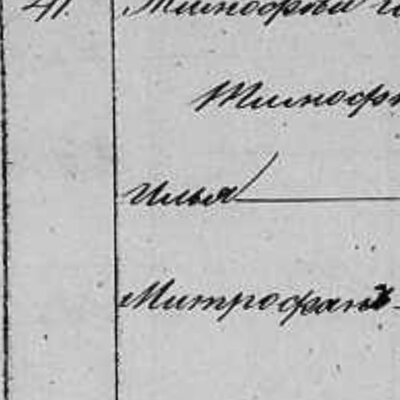 41. Тимофѣй
Тимоф
Илья
Митрофанъ